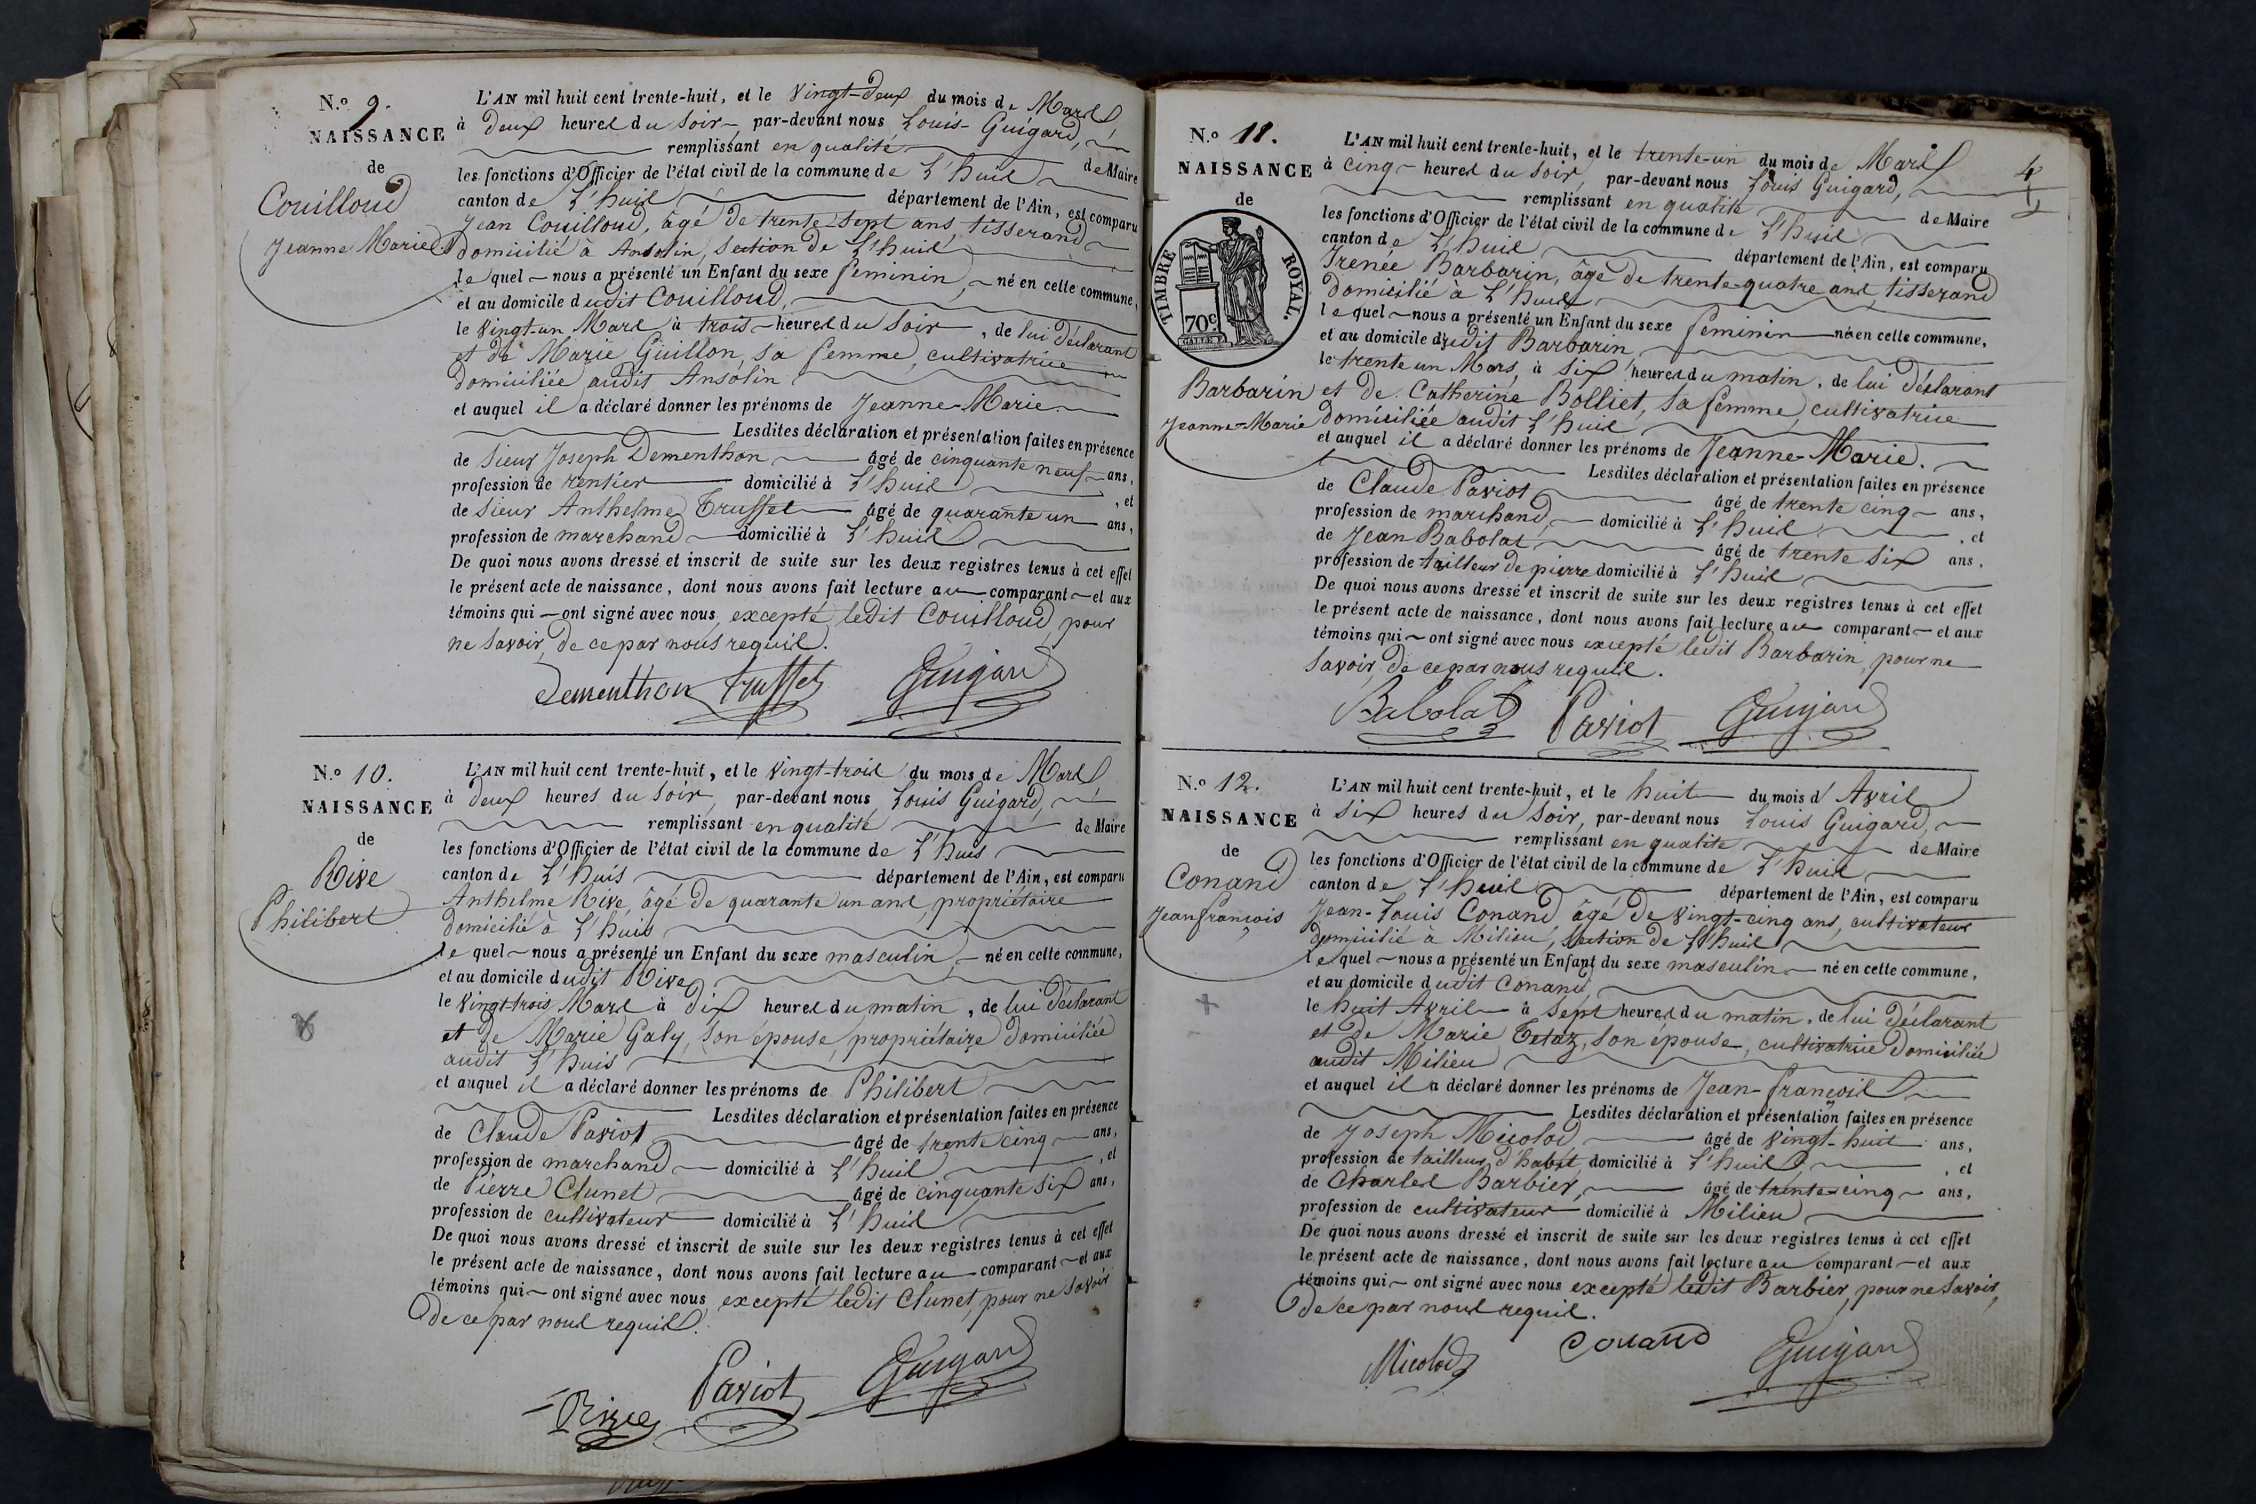 N.o 9.
NAISSANCE
de
Couilloud
Jeanne Marie
L'AN mil huit cent trente-huit, et le vingt-deux du mois de Mars
à deux heures du soir, par-devant nous Louis Guigard,
remplissant en qualité de Maire
les fonctions d'Officier de l'état civil de la commune de L'huis
canton de L'huis département de l'Ain, est comparu
Jean Couilloud, âgé de trente-sept ans, tisserand
domicilié à Ansolin, section de L'huis
le quel nous a présenté un Enfant du sexe feminin, né en cette commune,
et au domicile dudit Couilloud,
le vingt-un Mars à trois heures du soir, de lui déclarant
et de Marie Guillon, sa femme, cultivatrice
domiciliée audit Ansolin
et auquel il a déclaré donner les prénoms de Jeanne-Marie.
Lesdites déclaration et présentation faites en présence
de sieur Joseph Dementhon âgé de cinquante neuf ans,
profession de rentier domicilié à L'huis, et
de sieur Anthelme Truffet âgé de quarante un ans,
profession de marchand domicilié à L'huis
De quoi nous avons dressé et inscrit de suite sur les deux registres tenus à cet effet
le présent acte de naissance, dont nous avons fait lecture au comparant et aux
témoins qui ont signé avec nous, excepté ledit Couilloud, pour
ne savoir, de ce par nous requis.
Dementhon Truffet Guigard
N.o 10.
NAISSANCE
de
Rive
Philibert
L'AN mil huit cent trente-huit, et le vingt-trois du mois de Mars
à deux heures du soir, par-devant nous Louis Guigard,
remplissant en qualité de Maire
les fonctions d'Officier de l'état civil de la commune de L'huis
canton de L'huis département de l'Ain, est comparu
Anthelme Rive, âgé de quarante un ans, propriétaire
domicilié à L'huis
le quel nous a présenté un Enfant du sexe masculin, né en cette commune,
et au domicile dudit Rive,
le vingt trois Mars à dix heures du matin, de lui déclarant
et de Marie Galy, son épouse, propriétaire domiciliée
audit L'huis
et auquel il a déclaré donner les prénoms de Philibert
Lesdites déclaration et présentation faites en présence
de Claude Paviot âgé de trente cinq ans,
profession de marchand domicilié à L'huis, et
de Pierre Clunet âgé de cinquante six ans,
profession de cultivateur domicilié à L'huis
De quoi nous avons dressé et inscrit de suite sur les deux registres tenus à cet effet
le présent acte de naissance, dont nous avons fait lecture au comparant et aux
témoins qui ont signé avec nous, excepté ledit Clunet, pour ne savoir
de ce par nous requis.
Rive Paviot Guigard
N.o 11.
NAISSANCE
de
TIMBRE ROYAL.
70c
Barbarin
Jeanne-Marie
4
L'AN mil huit cent trente-huit, et le trente-un du mois de Mars
à cinq heures du soir, par-devant nous Louis Guigard,
remplissant en qualité de Maire
les fonctions d'Officier de l'état civil de la commune de L'huis
canton de L'huis département de l'Ain, est comparu
Irenée Barbarin, âgé de trente-quatre ans, tisserand
domicilié à L'huis
le quel nous a présenté un Enfant du sexe feminin né en cette commune,
et au domicile dudit Barbarin,
le trente un Mars, à six heures du matin, de lui déclarant
et de Catherine Bolliet, sa femme, cultivatrice
domiciliée audit L'huis,
et auquel il a déclaré donner les prénoms de Jeanne-Marie.
Lesdites déclaration et présentation faites en présence
de Claude Paviot âgé de trente cinq ans,
profession de marchand, domicilié à L'huis, et
de Jean Babolat âgé de trente six ans,
profession de tailleur de pierre domicilié à L'huis
De quoi nous avons dressé et inscrit de suite sur les deux registres tenus à cet effet
le présent acte de naissance, dont nous avons fait lecture au comparant et aux
témoins qui ont signé avec nous excepté ledit Barbarin, pour ne
savoir, de ce par nous requis.
Babolat Paviot Guigard
N.o 12.
NAISSANCE
de
Conand
Jean françois
L'AN mil huit cent trente-huit, et le huit du mois d'Avril
à six heures du soir, par-devant nous Louis Guigard,
remplissant en qualité de Maire
les fonctions d'Officier de l'état civil de la commune de L'huis
canton de L'huis département de l'Ain, est comparu
Jean-Louis Conand âgé de vingt-cinq ans, cultivateur
domicilié à Milieu, section de L'huis
le quel nous a présenté un Enfant du sexe masculin né en cette commune,
et au domicile dudit Conand
le huit Avril à sept heures du matin, de lui déclarant
et de Marie Tetaz, son épouse, cultivatrice domiciliée
audit Milieu
et auquel il a déclaré donner les prénoms de Jean-françois
Lesdites déclaration et présentation faites en présence
de Joseph Micolod âgé de vingt-huit ans,
profession de tailleur d'habit, domicilié à L'huis, et
de Charles Barbier, âgé de trente-cinq ans,
profession de cultivateur domicilié à Milieu
De quoi nous avons dressé et inscrit de suite sur les deux registres tenus à cet effet
le présent acte de naissance, dont nous avons fait lecture au comparant et aux
témoins qui ont signé avec nous excepté ledit Barbier, pour ne savoir,
de ce par nous requis.
Micolod Conand Guigard